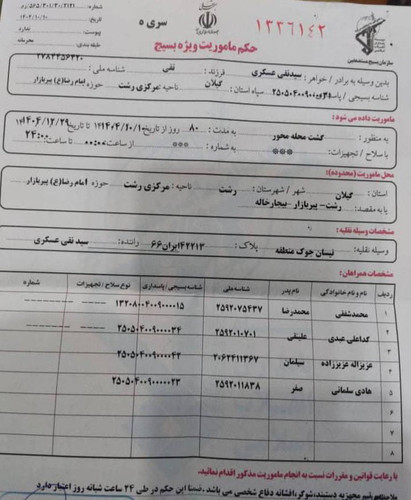 ۱۳۳۶۱۴۲
سری ه
حکم ماموریت ویژه بسیج
سازمان بسیج مستضعفین
تاریخ: ۱۴۰۴/۱۰/۱۰
پیوست: ندارد
طبقه بندی: محرمانه
بدین وسیله به برادر / خواهر: سیدتقی عسکری فرزند: تقی شناسه ملی:
شناسه بسیجی / پاسداری سپاه استان: گیلان ناحیه: مرکزی رشت حوزه امام رضا(ع) پیربازار
ماموریت داده می شود:
به منظور: گشت محله محور به مدت: ۸۰ روز از تاریخ: ۱۴۰۴/۱۰/۱۰ تا تاریخ: ۱۴۰۴/۱۲/۲۹
با سلاح / تجهیزات: *** به شماره: *** از ساعت: ۰۰:۰۰ تا ساعت: ۲۴:۰۰
محل ماموریت (محدوده):
استان: گیلان شهر / شهرستان: رشت ناحیه: مرکزی رشت حوزه امام رضا(ع) پیربازار
یا به مقصد: رشت- پیربازار بیجارخاله
مشخصات وسیله نقلیه:
وسیله نقلیه: نیسان جوک متعلقه پلاک: ایران۶۶ راننده: سید تقی عسکری
مشخصات همراهان:
ردیف نام و نام خانوادگی نام پدر شناسه ملی شناسه بسیجی/ پاسداری نوع سلاح / تجهیزات شماره
۱ محمدشفیع محمدرضا ۲۵۹۲۰۷۵۴۳۷ ۱۳۲۰۸۰۰۴۰۰۹۰۰۰۰۱۵
۲ کداعلی عبدی علینقی ۲۵۹۲۰۱۰۷۰۱ ۲۵۰۵۰۴۰۰۹۰۰۰۰۳۴
۳ عزیزاله عزیززاده سیلمان ۲۰۶۲۴۱۱۳۶۷ ۲۵۰۵۰۴۰۰۹۰۰۰۰۴۲
هادی سلمانی صفر ۲۵۹۲۰۱۱۸۳۸ ۲۵۰۵۰۴۰۰۹۰۰۰۰۲۳
۵
۶
۷
۸
با رعایت قوانین و مقررات نسبت به انجام ماموریت مذکور اقدام نمائید.
مجهزبه دستبند، شوکر، افشانه دفاع شخصی می باشد. ضمنا این حکم در طی ۲۴ ساعت شبانه روز اعتبار دارد